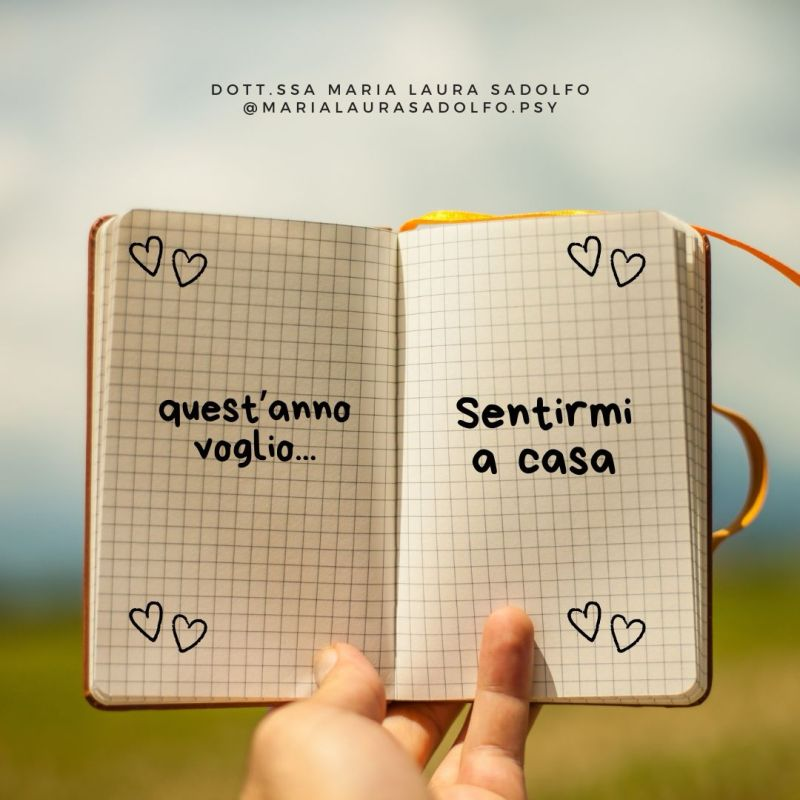 DOTT.SSA MARIA LAURA SADOLFO
@MARIALAURASADOLFO.PSY
quest'anno
voglio...
Sentirmi
a casa